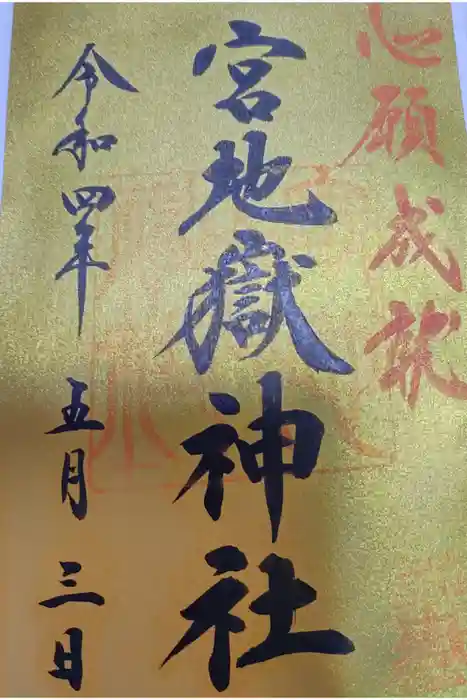 心願成就
宮地嶽神社
令和四年
五月三日